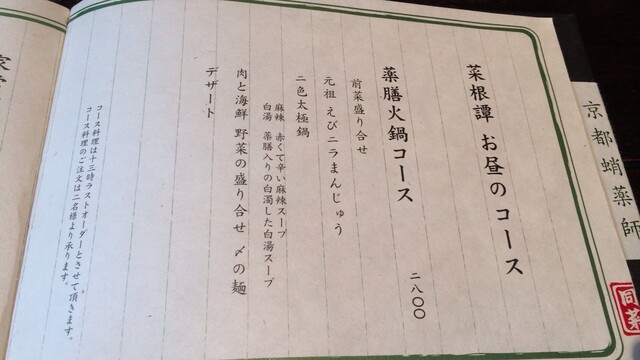 京都蛸薬師
同菜
菜根譚 お昼のコース
薬膳火鍋コース
二八〇〇
前菜盛り合せ
元祖 えびニラまんじゅう
二色太極鍋
麻辣 赤くて辛い麻辣スープ
白湯 薬膳入りの白濁した白湯スープ
肉と海鮮 野菜の盛り合せ 〆の麺
デザート
コース料理は十三時ラストオーダーとさせて頂きます。
コース料理のご注文は二名様より承ります。